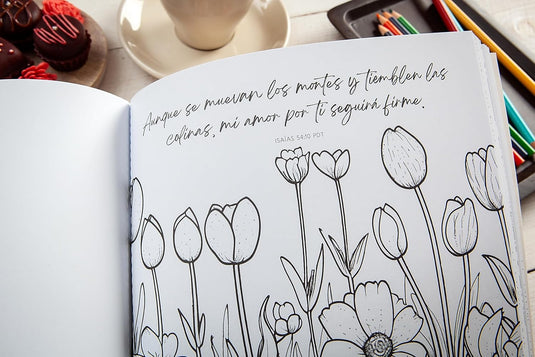 Aunque se muevan los montes y tiemblen las
colinas, mi amor por ti seguirá firme.
ISAÍAS 54:10 PDT